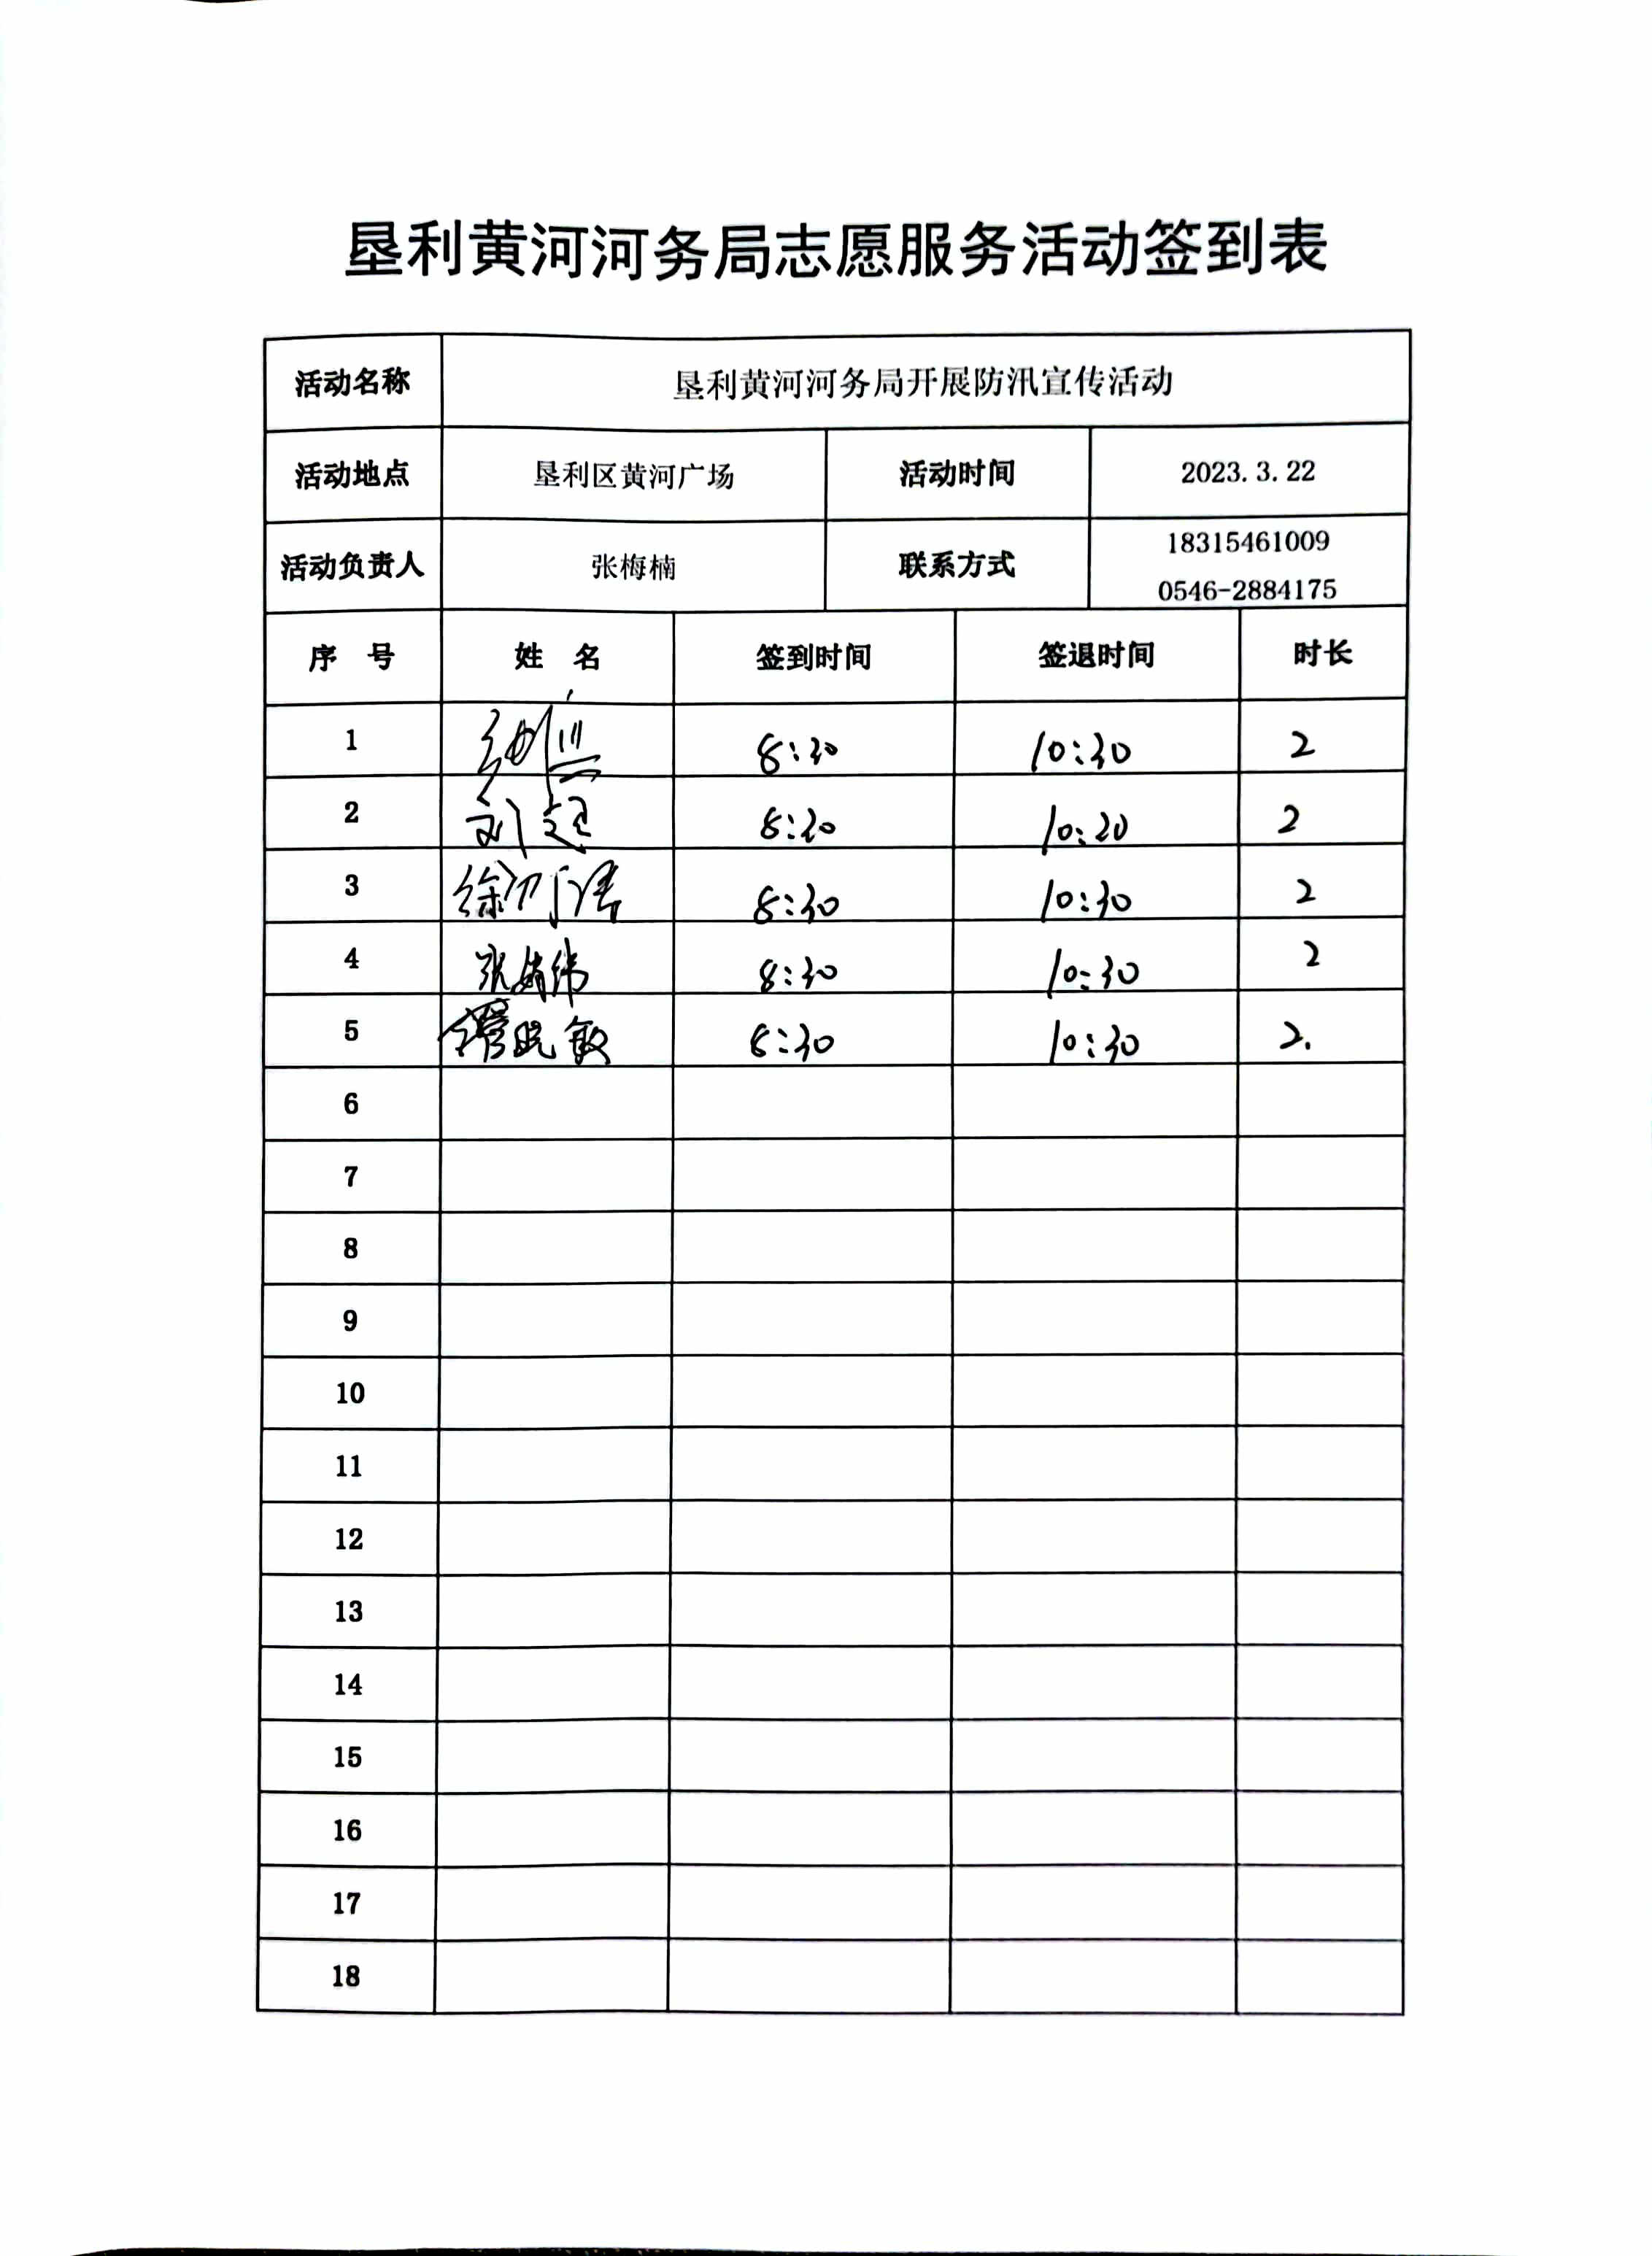 垦利黄河河务局志愿服务活动签到表
活动名称 垦利黄河河务局开展防汛宣传活动
活动地点 垦利区黄河广场 活动时间 2023.3.22
活动负责人 张梅楠 联系方式 18315461009
0546-2884175
序 号 姓 名 签到时间 签退时间 时长
1 8:30 10:30 2
2 刘 8:30 10:30 2
3 徐 8:30 10:30 2
4 张 8:30 10:30 2
5 敏 8:30 10:30 2.
6
7
8
9
10
11
12
13
14
15
16
17
18